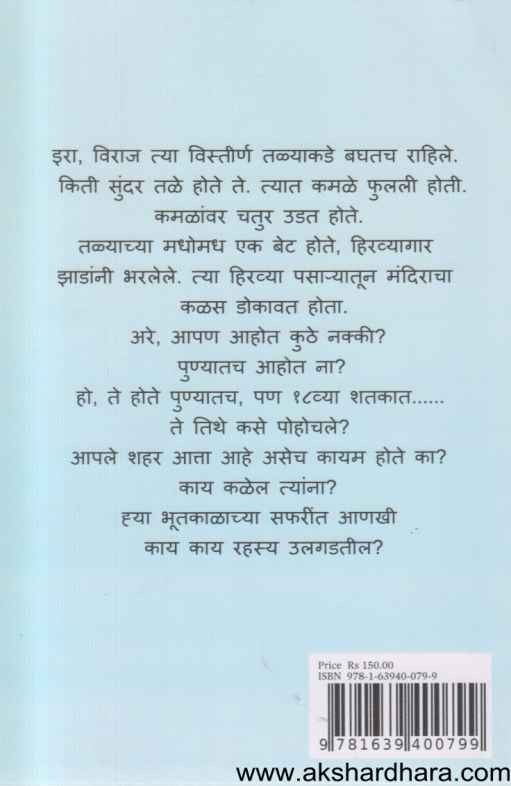 इरा, विराज त्या विस्तीर्ण तळ्याकडे बघतच राहिले.
किती सुंदर तळे होते ते. त्यात कमळे फुलली होती.
कमळांवर चतुर उडत होते.
तळ्याच्या मधोमध एक बेट होते, हिरव्यागार
झाडांनी भरलेले. त्या हिरव्या पसाऱ्यातून मंदिराचा
कळस डोकावत होता.
अरे, आपण आहोत कुठे नक्की?
पुण्यातच आहोत ना?
हो, ते होते पुण्यातच, पण १८व्या शतकात......
ते तिथे कसे पोहोचले?
आपले शहर आत्ता आहे असेच कायम होते का?
काय कळेल त्यांना?
ह्या भूतकाळाच्या सफरींत आणखी
काय काय रहस्य उलगडतील?
Price Rs 150.00
ISBN 978-1-63940-079-9
9 781639 400799
www.akshardhara.com